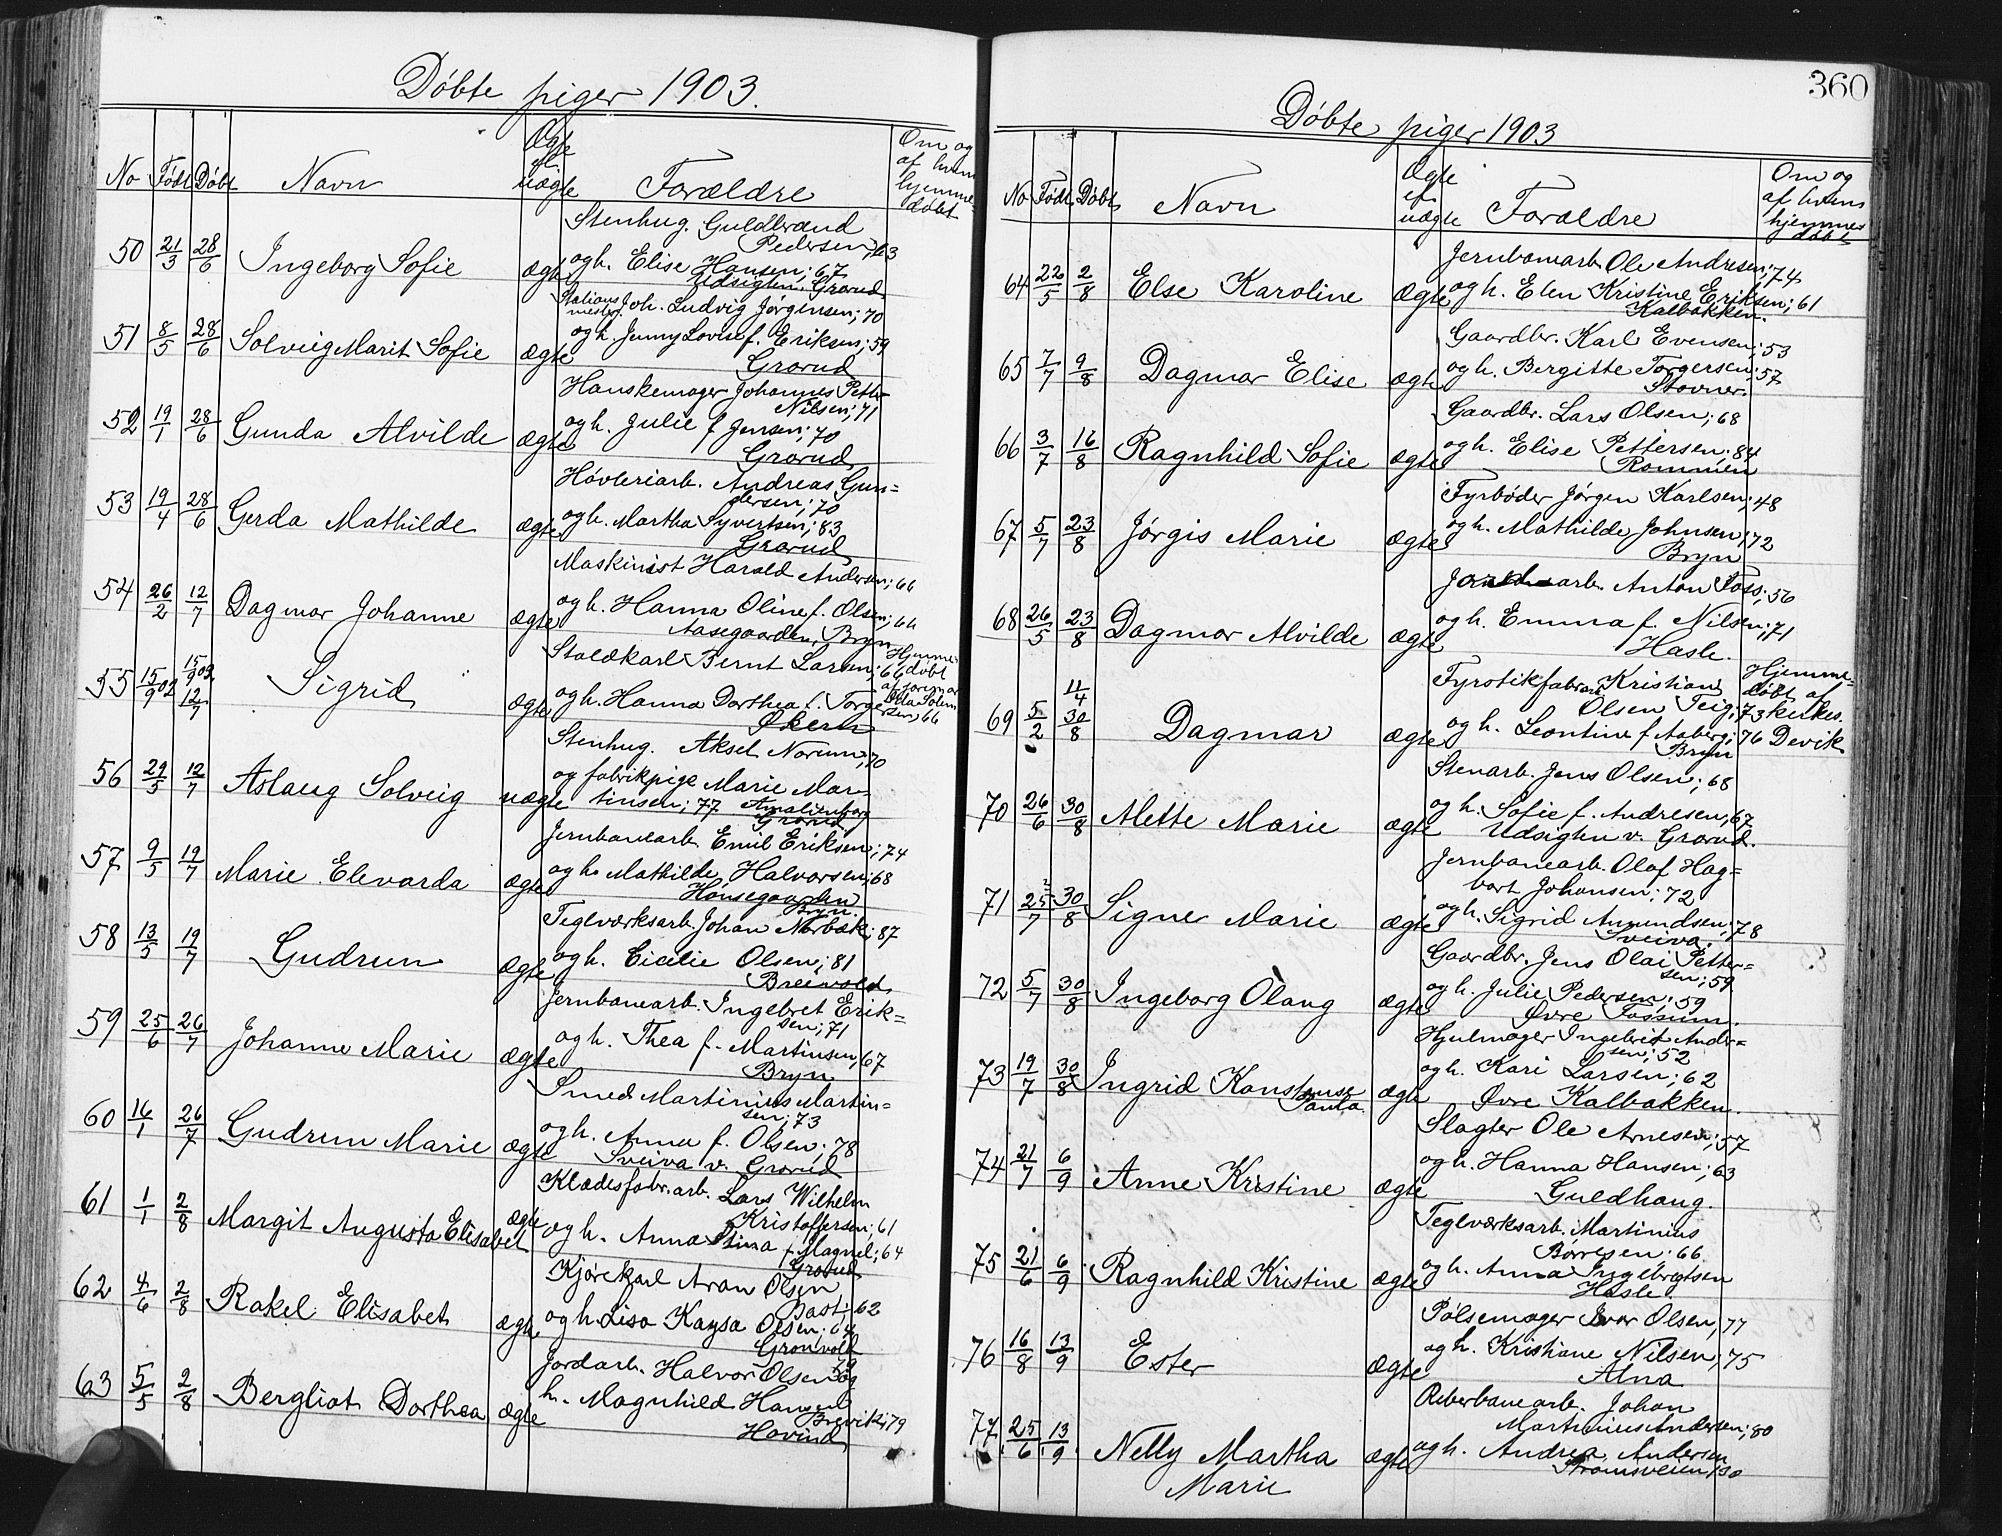 Døbte piger 1903.
No Født Døbt Navn Ægte el. uægte Forældre Om og af hvem hjemmedøbt
50 21/3 28/6 Ingeborg Sofie ægte Stenhug. Guldbrand
Pedersen; 63
og h. Elise Hansen; 67
Udsigten, Grorud
51 8/5 28/6 Solveig Marit Sofie ægte Stationsmester Joh. Ludvig Jørgensen; 70
og h. Jenny Lovise f. Eriksen; 59
Grorud
52 19/1 28/6 Gunda Alvilde ægte Hanskemager Johannes Petter
Nilsen; 71
og h. Julie f. Jensen; 70
Grorud
53 19/4 28/6 Gerda Mathilde ægte Høvleriarb. Andreas Gun=
dersen; 70
og h. Martha Syvertsen; 83
Grorud
54 26/2 12/7 Dagmar Johanne ægte Maskinist Harald Andersen; 66
og h. Hanna Oline f. Olsen; 66
Aasegaarden, Bryn
55 15/9 02 15/9 02 12/7 Sigrid ægte Staldkarl Bernt Larsen; 66 Hjemmedøbt
og h. Hanna Dorthea f. Torger
sen, 66
Økern
56 29/5 12/7 Aslaug Solveig uægte Stenhug. Aksel Norum; 70
og fabrikpige Marie Mar
tinsen; 77 Amalienborg
Grorud
57 9/5 19/7 Marie Elevarda ægte Jernbanearb. Emil Eriksen; 74
og h. Mathilde Halvorsen; 68
Hønsegaarden
Bryn.
58 13/5 19/7 Gudrun ægte Teglværksarb. Johan Norbæk; 87
og h. Cicilie Olsen; 81
Breivold
59 25/6 26/7 Johanne Marie ægte Jernbanearb. Ingebret Erik=
sen; 71
og h. Thea f. Martinsen, 67
Bryn
60 16/1 26/7 Gudrun Marie ægte Smed Martinius Martin=
sen; 73
og h. Anna f. Olsen; 78
Sveiva v. Grorud
61 1/1 2/8 Margit Augusta Elisabet ægte Klædesfabr.arb. Lars Wilhelm
Kristoffersen; 61
og h. Anna Stina f. Magnel; 64
Grorud
62 4/6 2/8 Rakel Elisabet ægte Kjørekarl Aron Olsen
Bast; 62
og h. Lisa Kaysa Olsen; 64
Grønvold
63 5/5 2/8 Bergliot Dorthea ægte Jordarb. Halvor Olsen 79 og
h. Magnhild Hansen
Brevik; 79
Hovind
360
Døbte piger 1903
No Født Døbt Navn Ægte el. uægte Forældre Om og af hvem hjemmedøbt
64 22/5 2/8 Else Karoline ægte Jernbanarb. Ole Andresen; 74
og h. Elen Kristine Eriksen; 61
Kalbakken.
65 7/7 9/8 Dagmar Elise ægte Gaardbr. Karl Evensen; 53
og h. Bergitte Torgersen; 57
Stovner.
66 3/7 16/8 Ragnhild Sofie ægte Gaardbr. Lars Olsen; 68
og h. Elise Pettersen; 84
Rommen
67 5/7 23/8 Jørgis Marie ægte Fyrbøder Jørgen Karlsen; 48
og h. Mathilde Johnsen; 72
Bryn
68 26/5 23/8 Dagmar Alvilde ægte arb. Anton Foss; 56
og h. Emma f. Nilsen; 71
Hasle.
69 5/2 11/4 30/8 Dagmar ægte Fyrstikfabrarb. Kristian Hjemme=
Olsen Teig; 73 døbt af kirkes.
og h. Leontine f. Aaberg; 76 Devik
Bryn
70 26/6 30/8 Alette Marie ægte Stenarb. Jens Olsen; 68
og h. Sofie f. Andresen, 67
Udsigten v. Grorud.
71 25/7 30/8 Signe Marie ægte Jernbanearb. Olaf Hag=
bart Johansen; 72
og h. Sigrid Amundsen; 78
Sveiva.
72 5/7 30/8 Ingeborg Olaug ægte Gaardbr. Jens Olai Petter=
sen; 59
og h. Julie Pedersen; 59
Øvre Fossum.
73 19/7 30/8 Ingrid Konstanse Paula. ægte Hjulmager Ingebrit Ander=
sen; 52
og h. Kari Larsen; 62
Øvre Kalbakken.
74 21/7 6/9 Anne Kristine ægte Slagter Ole Arnesen; 57
og h. Hanna Hansen; 63
Guldhaug.
75 21/6 6/9 Ragnhild Kristine ægte Teglværksarb. Martinius
Børresen; 66
og h. Anna Ingebrigtsen
Hasle
76 16/8 13/9 Ester ægte Pølsemager Ivar Olsen, 77
og h. Kristiane Nilsen; 75
Alna
77 25/6 13/9 Nelly Martha Marie ægte Reberbanearb. Johan
Martinius Andersen; 80
og h. Andrea Andersen
Strømsveien 130